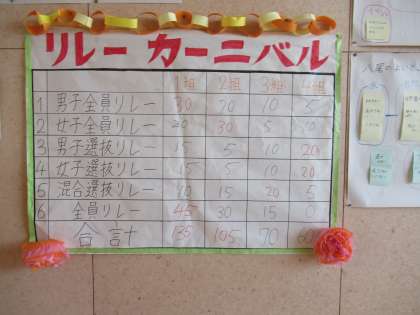 リレー カーニバル
1組 2組 3組 4組
1 男子全員リレー 30 20 10 5
2 女子全員リレー 20 30 5 10
3 男子選抜リレー 15 5 10 20
4 女子選抜リレー 15 5 10 20
5 混合選抜リレー 10 15 20 5
6 全員リレー 45 30 15 0
合計 135 105 70 60
八尾のよい